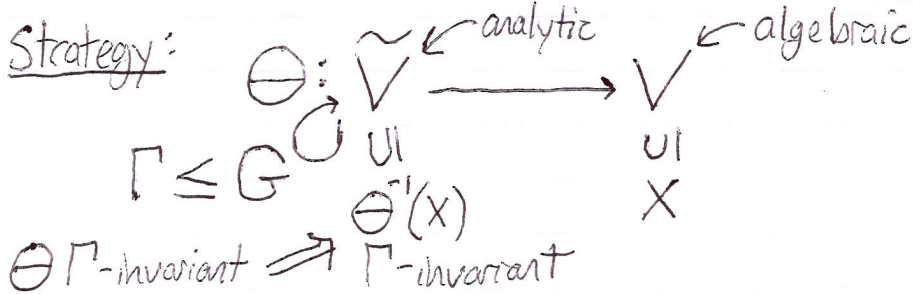 Strategy: Θ: Ṽ ⟶ V
analytic
algebraic
Γ ≤ G ↻ UI UI
Θ⁻¹(X) X
Θ Γ-invariant ⇒ Γ-invariant